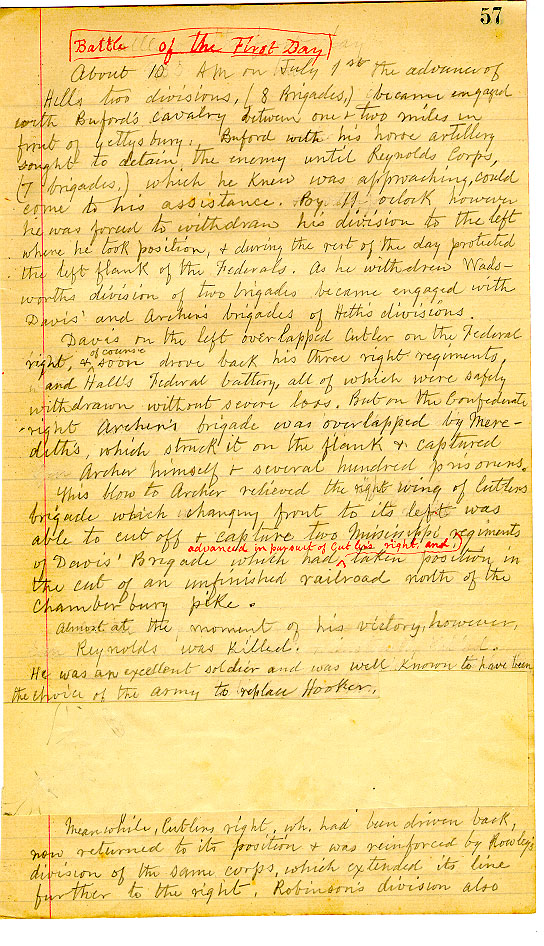 57
Battle of the First Day
About 10 AM on July 1st the advance of
Hills two divisions, (8 Brigades,) became engaged
with Bufords cavalry between one & two miles in
front of Gettysburg. Buford with his horse artillery
sought to detain the enemy until Reynolds Corps,
(7 brigades,) which he knew was approaching, could
come to his assistance. By 11 oclock however
he was forced to withdraw his division to the left
where he took position, & during the rest of the day protected
the left flank of the Federals. As he withdrew Wads-
worths division of two brigades became engaged with
Davis' and Archers brigades of Heths divisions.
Davis on the left overlapped Cutler on the Federal
of course
right, & soon drove back his three right regiments,
and Hall's Federal battery, all of which were safely
withdrawn without severe loss. But on the Confederate
right Archer's brigade was overlapped by Mere-
diths, which struck it on the flank & captured
Archer himself & several hundred prisoners.
This blow to Archer relieved the right wing of Cutlers
brigade which changing front to its left was
able to cut off & capture two Mississippi regiments
advanced in pursuit of Cutlers right, and
of Davis' Brigade which had taken position in
the cut of an unfinished railroad north of the
Chambersbury pike.
Almost at the moment of his victory, however,
Reynolds was killed.
He was an excellent soldier and was well known to have been
the choice of the army to replace Hooker.
Meanwhile, Cutlers right, wh. had been driven back,
now returned to its position & was reinforced by Rowley's
division of the same corps, which extended its line
further to the right. Robinson's division also